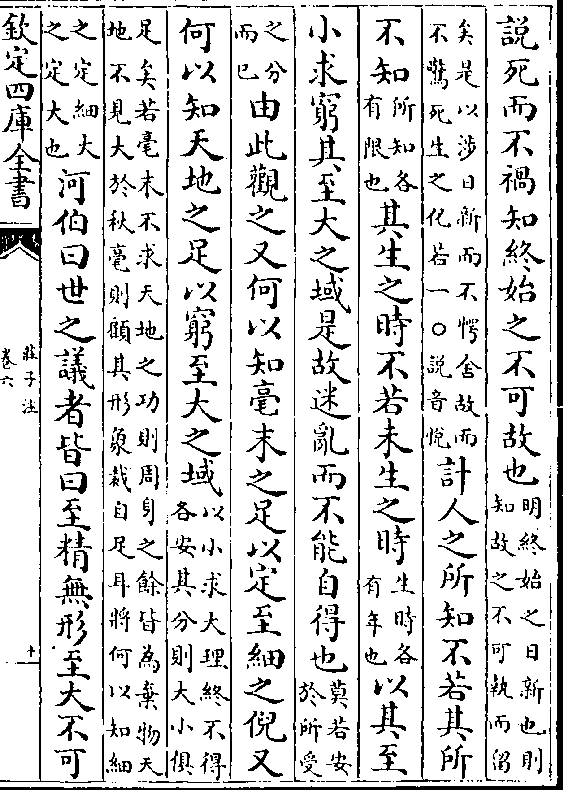 說死而不禍知終始之不可故也明終始之日新也則知故之不可執而留
矣是以涉日新而不愕舍故而不驚死生之化若一○說音悅計人之所知不若其所
不知所知各有限也其生之時不若未生之時生時各有年也以其至
小求窮其至大之域是故迷亂而不能自得也莫若安於所受
之分而已由此觀之又何以知毫末之足以定至細之倪又
何以知天地之足以窮至大之域以小求大理終不得各安其分則大小俱
足矣若毫末不求天地之功則周身之餘皆為棄物天地不見大於秋毫則顧其形象裁自足耳將何以知細
之定細大之定大也河伯曰世之議者皆曰至精無形至大不可
欽定四庫全書
莊子注
卷六
十